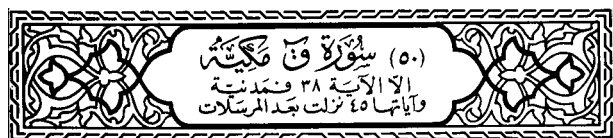 (٥٠) سُورَة ق مَكيَّة
إلا الآية ٣٨ فمدنية
وآياتها ٤٥ نزلت بعد المرسلات